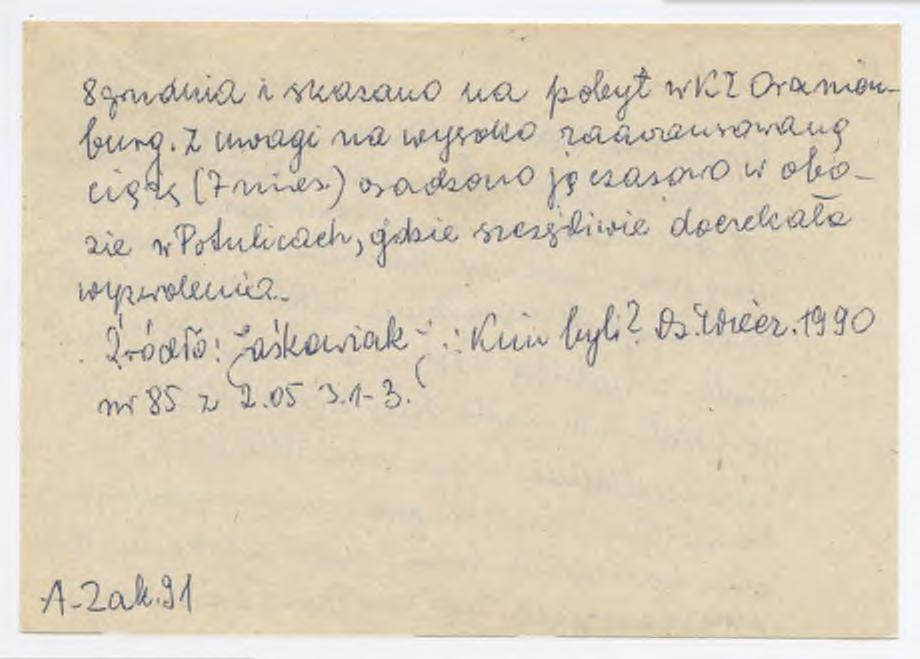 8 grudnia i skazano na pobyt w KZ Oranien-
burg. Z uwagi na wysoko zaawansowaną
ciążę (7 mies.) osadzono ją czasowo w obo-
zie w Potulicach, gdzie szczęśliwie doczekała
wyzwolenia.
Źródło: Jaśkowiak J.: Kim byli? Dz. Wiecz. 1990
nr 85 z 2.05 s. 1-3.
A-Zak. 91